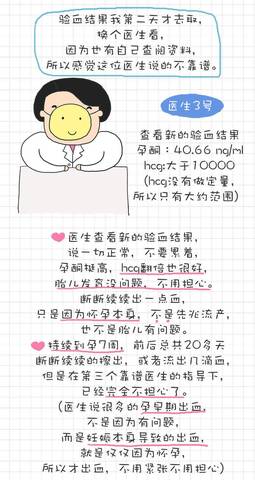 验血结果我第二天才去取,
换个医生看,
因为也有自己查阅资料,
所以感觉这位医生说的不靠谱。
医生3号
查看新的验血结果
孕酮：40.66 ng/ml
hcg:大于10000
(hcg没有做定量,
所以只有大约范围)
医生查看新的验血结果,
说一切正常,不要累着,
孕酮挺高,hcg翻倍也很好,
胎儿发育没问题,不用担心。
断断续续出一点血,
只是因为怀孕本身,不是先兆流产,
也不是胎儿有问题。
持续到孕7周,前后总共20多天
断断续续的擦出,或者流出几滴血,
但是在第三个靠谱医生的指导下,
已经完全不担心了。
(医生说很多的孕早期出血,
不是因为有问题,
而是妊娠本身导致的出血,
就是仅仅因为怀孕,
所以才出血,不用紧张不用担心)